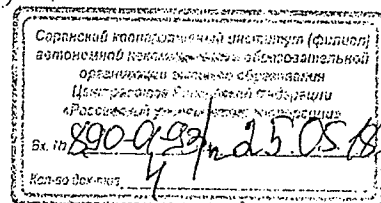 Саранский кооперативный институт (филиал)
автономной некоммерческой образовательной
организации высшего образования
Центросоюза Российской Федерации
«Российский университет кооперации»
Вх. № 25.05.18
Кол-во